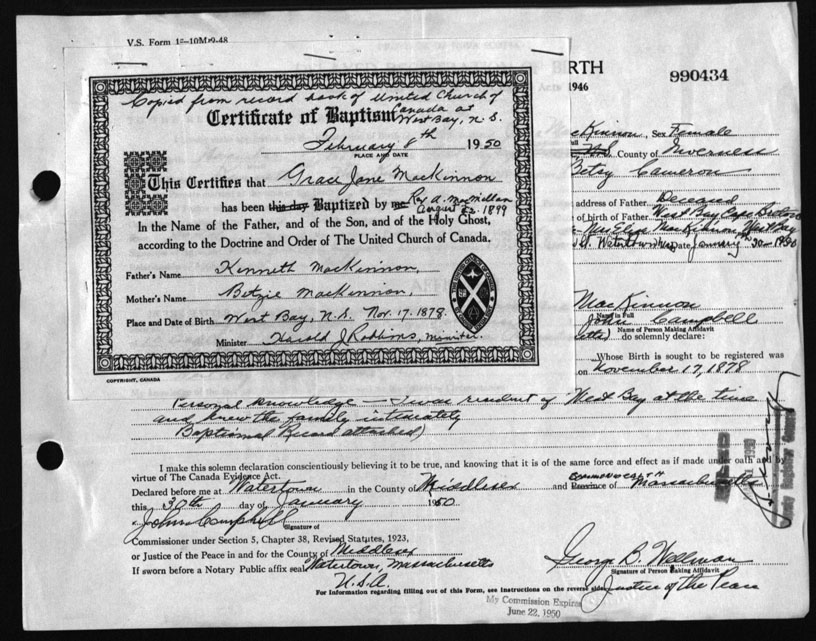 V.S. Form 1 -10M-9-48
RTH
990434
Acts 1946
Copied from record book of United Church of
Canada at
Certificate of Baptism West Bay, N.S.
February 8th 1950
PLACE AND DATE
This Certifies that Grace Jane MacKinnon
has been this day Baptized by me Rev. A. MacMillan
August 22. 1899
In the Name of the Father, and of the Son, and of the Holy Ghost,
according to the Doctrine and Order of The United Church of Canada.
Father's Name Kenneth MacKinnon,
Mother's Name Betzie MacKinnon,
Place and Date of Birth West Bay, N.S. Nov. 17. 1878.
Minister Harold J. Robbins, Minister.
COPYRIGHT, CANADA
MacKinnon, Sex Female
N.S. County of Inverness
Betsy Cameron
address of Father Deceased
of birth of Father West Bay Cape Breton
Mrs Eliza MacKinnon, West Bay
Watertown Date January 30 - 1950
MacKinnon
Name in Full
John Campbell
Name of Person Making Affidavit
do solemnly declare:
Whose Birth is sought to be registered was
on November 17, 1878
Personal knowledge - I was resident of West Bay at the time
and knew the family intimately
Baptismal Record attached)
I make this solemn declaration conscientiously believing it to be true, and knowing that it is of the same force and effect as if made under oath and by
virtue of The Canada Evidence Act.
Declared before me at Watertown in the County of Middlesex and Province of Commonwealth Massachusetts
this 30th day of January 1950
John Campbell
Signature of
Commissioner under Section 5, Chapter 38, Revised Statutes, 1923,
or Justice of the Peace in and for the County of Middlesex
If sworn before a Notary Public affix seal. Watertown, Massachusetts
U.S.A.
George B. Wellman
Signature of Person Making Affidavit
Justice of the Peace
For Information regarding filling out of this Form, see Instructions on the reverse side.
My Commission Expires
June 22, 1950